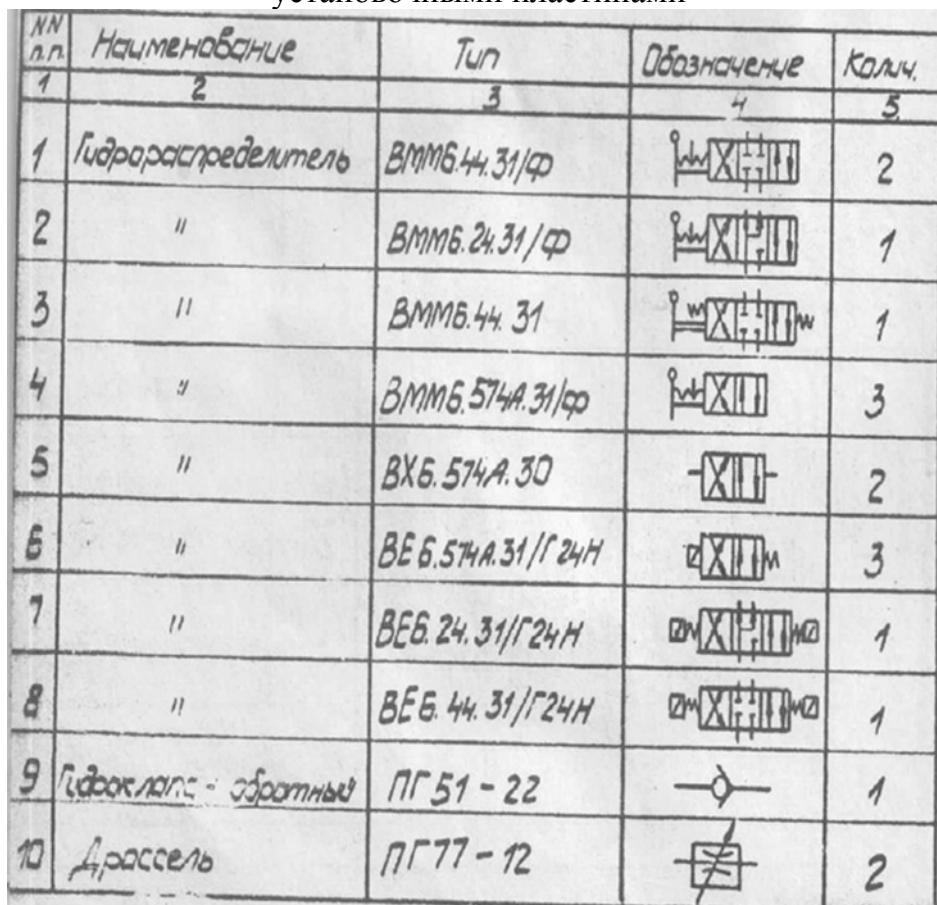 установочными пластинами
NN п.п. Наименование Тип Обозначение Колич.
1 2 3 4 5
1 Гидрораспределитель ВММ6.44.31/Ф 2
2 " ВММ6.24.31/Ф 1
3 " ВММ6.44.31 1
4 " ВММ6.574А.31/Ф 3
5 " ВХ6.574А.30 2
6 " ВЕ6.574А.31/Г24Н 3
7 " ВЕ6.24.31/Г24Н 1
8 " ВЕ6.44.31/Г24Н 1
9 Гидроклапа - обратный ПГ51-22 1
10 Дроссель ПГ77-12 2